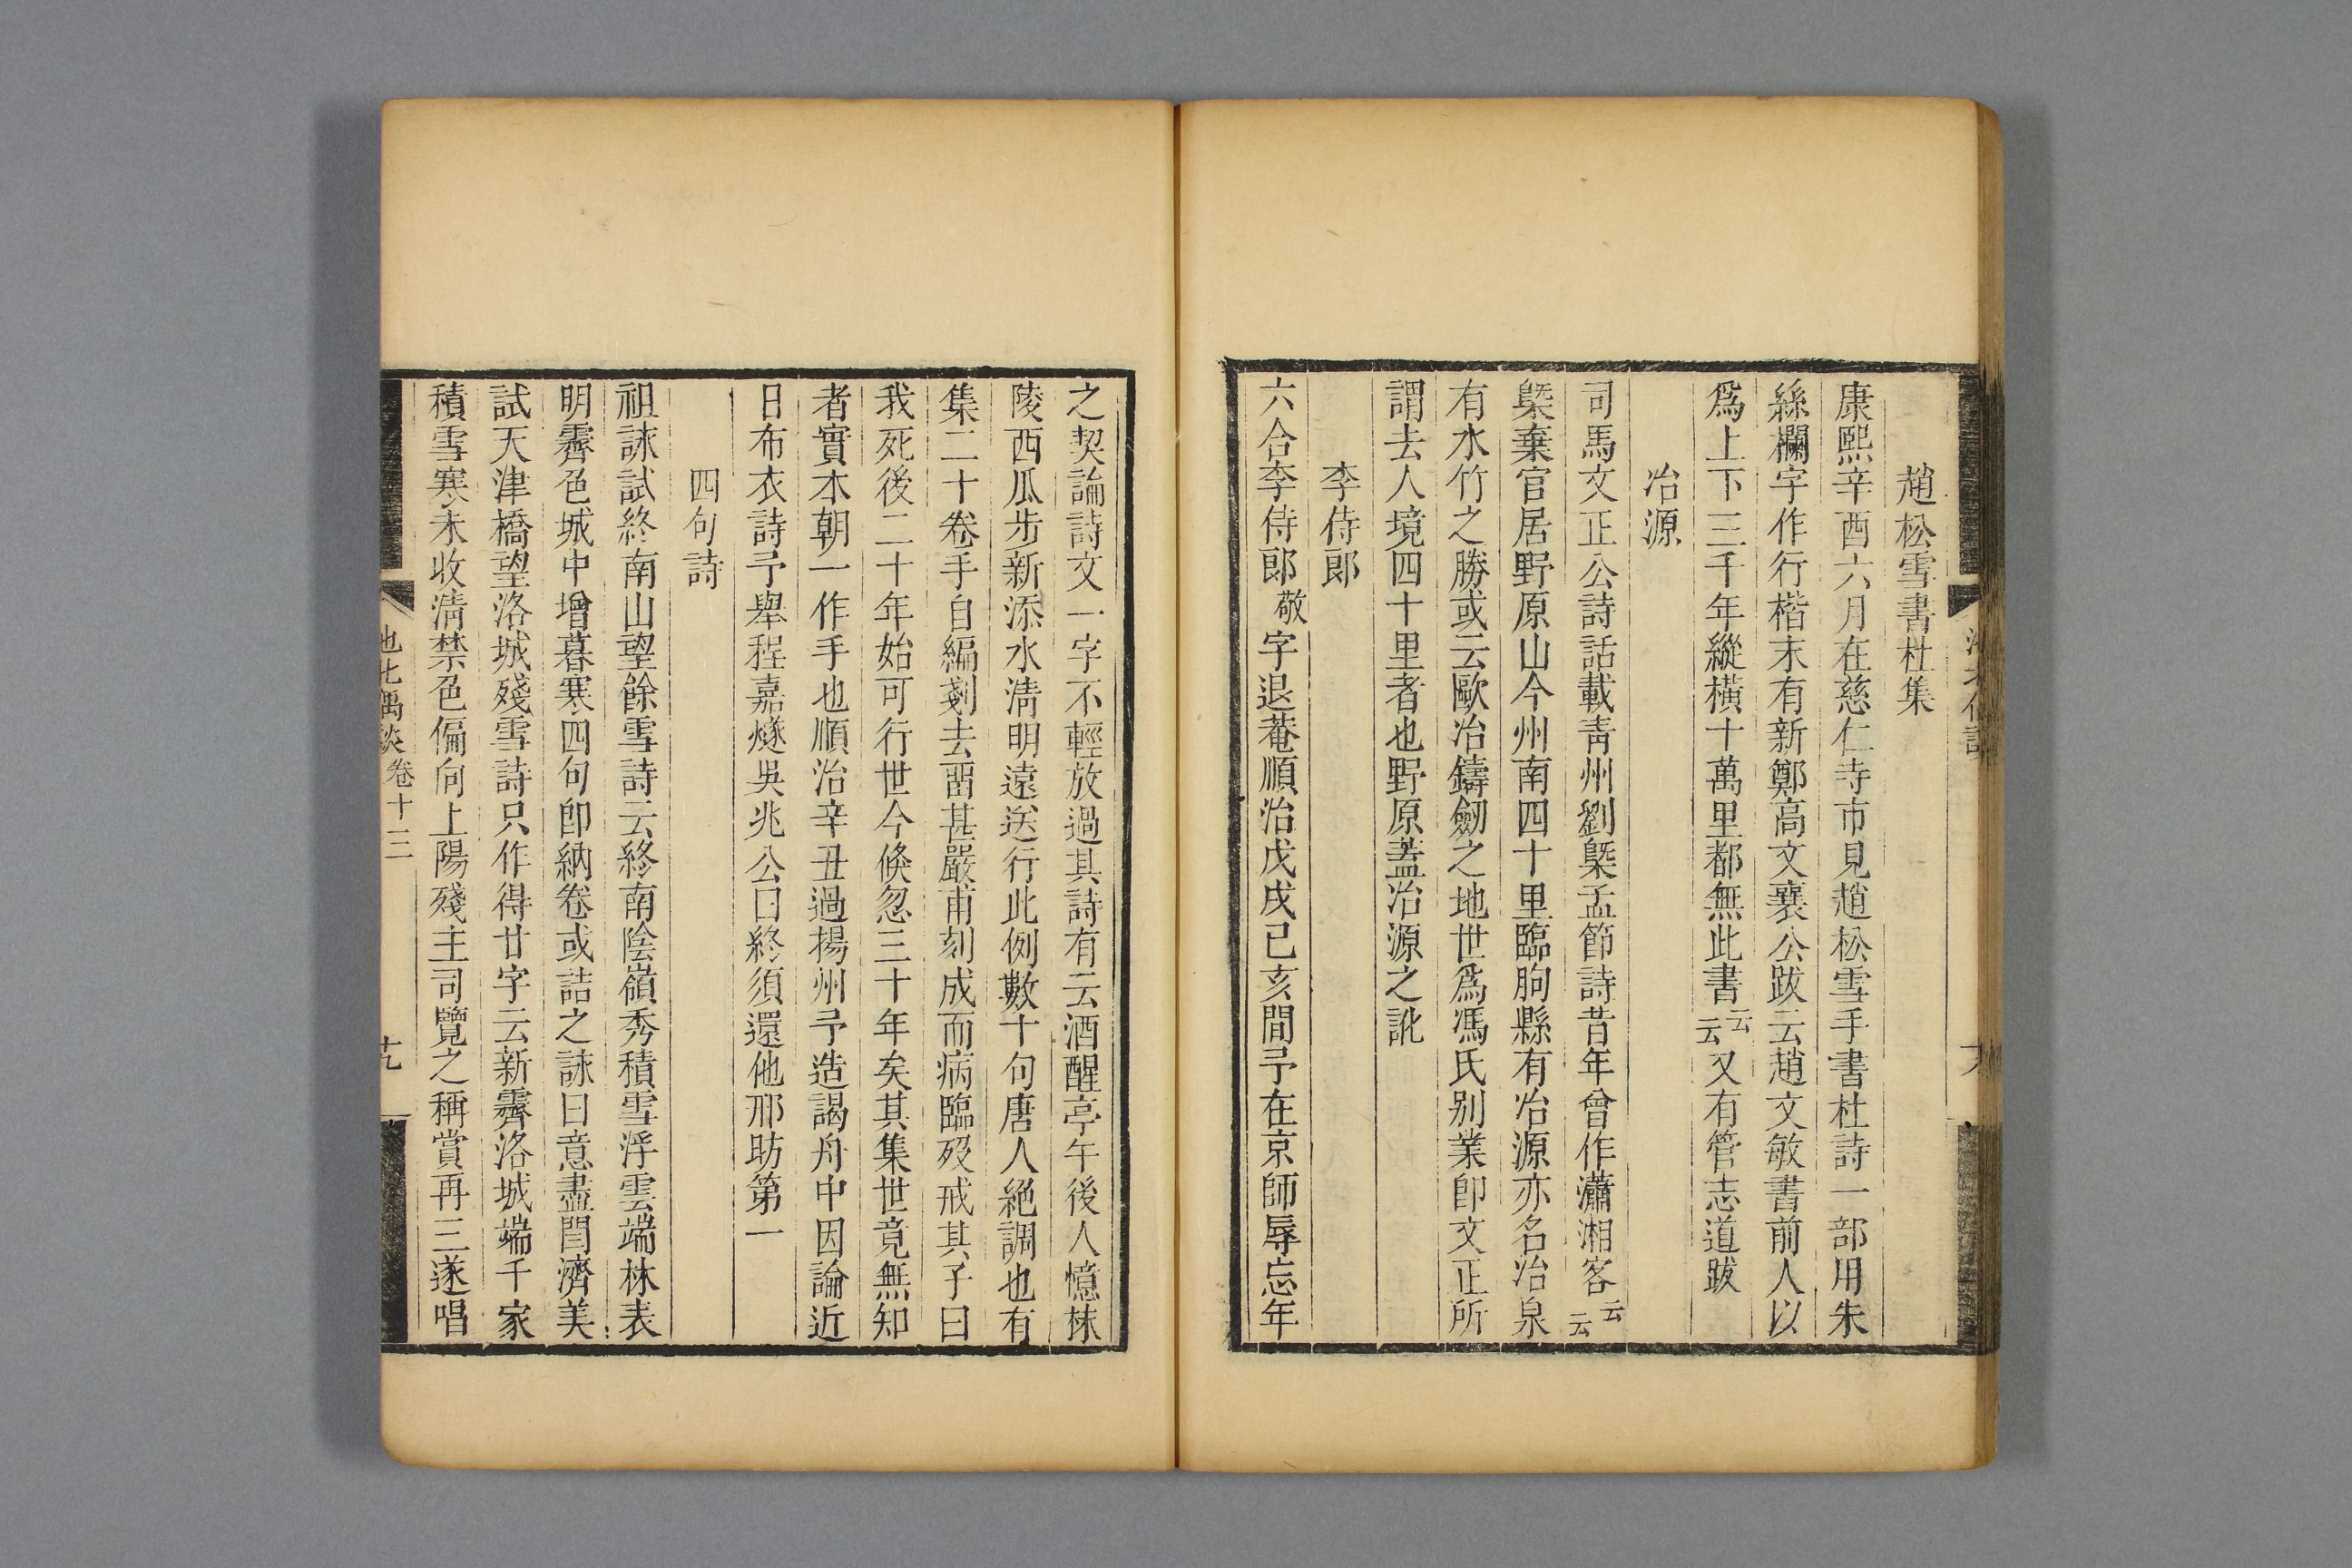 趙松雪書杜集
康熙辛酉六月在慈仁寺市見趙松雪手書杜詩一部用朱
絲欄字作行楷末有新鄭高文襄公跋云趙文敏書前人以
爲上下三千年縱橫十萬里都無此書云云又有管志道跋
冶源
司馬文正公詩話載靑州劉槩孟節詩昔年曾作瀟湘客云云
槩棄官居野原山今州南四十里臨朐縣有冶源亦名冶泉
有水竹之勝或云歐冶鑄劒之地世爲馮氏别業卽文正所
謂去人境四十里者也野原蓋冶源之訛
李侍郎
六合李侍郎敬字退菴順治戊戌己亥間予在京師辱忘年
之契論詩文一字不輕放過其詩有云酒醒亭午後人憶秣
陵西瓜步新添水淸明遠送行此例數十句唐人絕調也有
集二十卷手自編剗去畱甚嚴甫刻成而病臨歿戒其子曰
我死後二十年始可行世今倏忽三十年矣其集世竟無知
者實本朝一作手也順治辛丑過揚州予造謁舟中因論近
日布衣詩予舉程嘉燧吳兆公曰終須還他邢昉第一
四句詩
祖詠試終南山望餘雪詩云終南陰嶺秀積雪浮雲端林表
明霽色城中增暮寒四句卽納卷或詰之詠曰意盡閻濟美
試天津橋望洛城殘雪詩只作得廿字云新霽洛城端千家
積雪寒未收淸禁色偏向上陽殘主司覽之稱賞再三遂唱
池北偶談 卷十三 十九